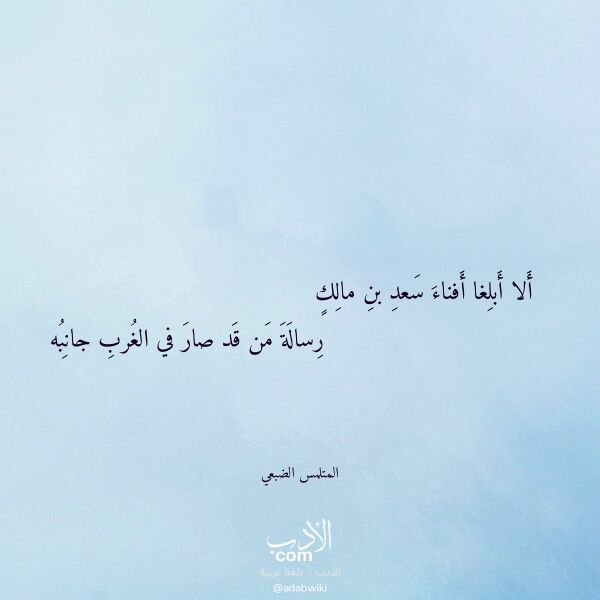 أَلا أَبلِغا أَفناءَ سَعدِ بنِ مالِكٍ
رِسالَةَ مَن قَد صارَ في الغُربِ جانِبُه
المتلمس الضبعي
الأدب
com
الأدب .. بلغة عربية
@adabwiki